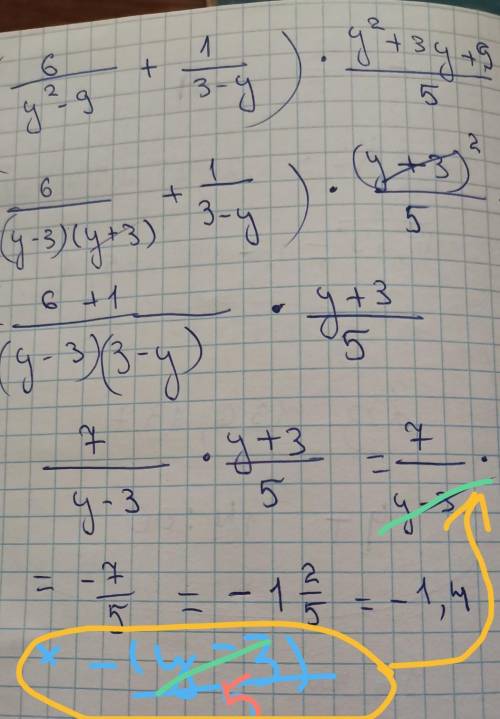 6/(y²-9) + 1/(3-y)) · (y²+3y+9)/5
6/((y-3)(y+3)) + 1/(3-y)) · (y+3)²/5
(6+1)/((y-3)(3-y)) · (y+3)/5
7/(y-3) · (y+3)/5 = 7/(y-3) ·
= -7/5 = -1 2/5 = -1,4
× -(y-3)/5